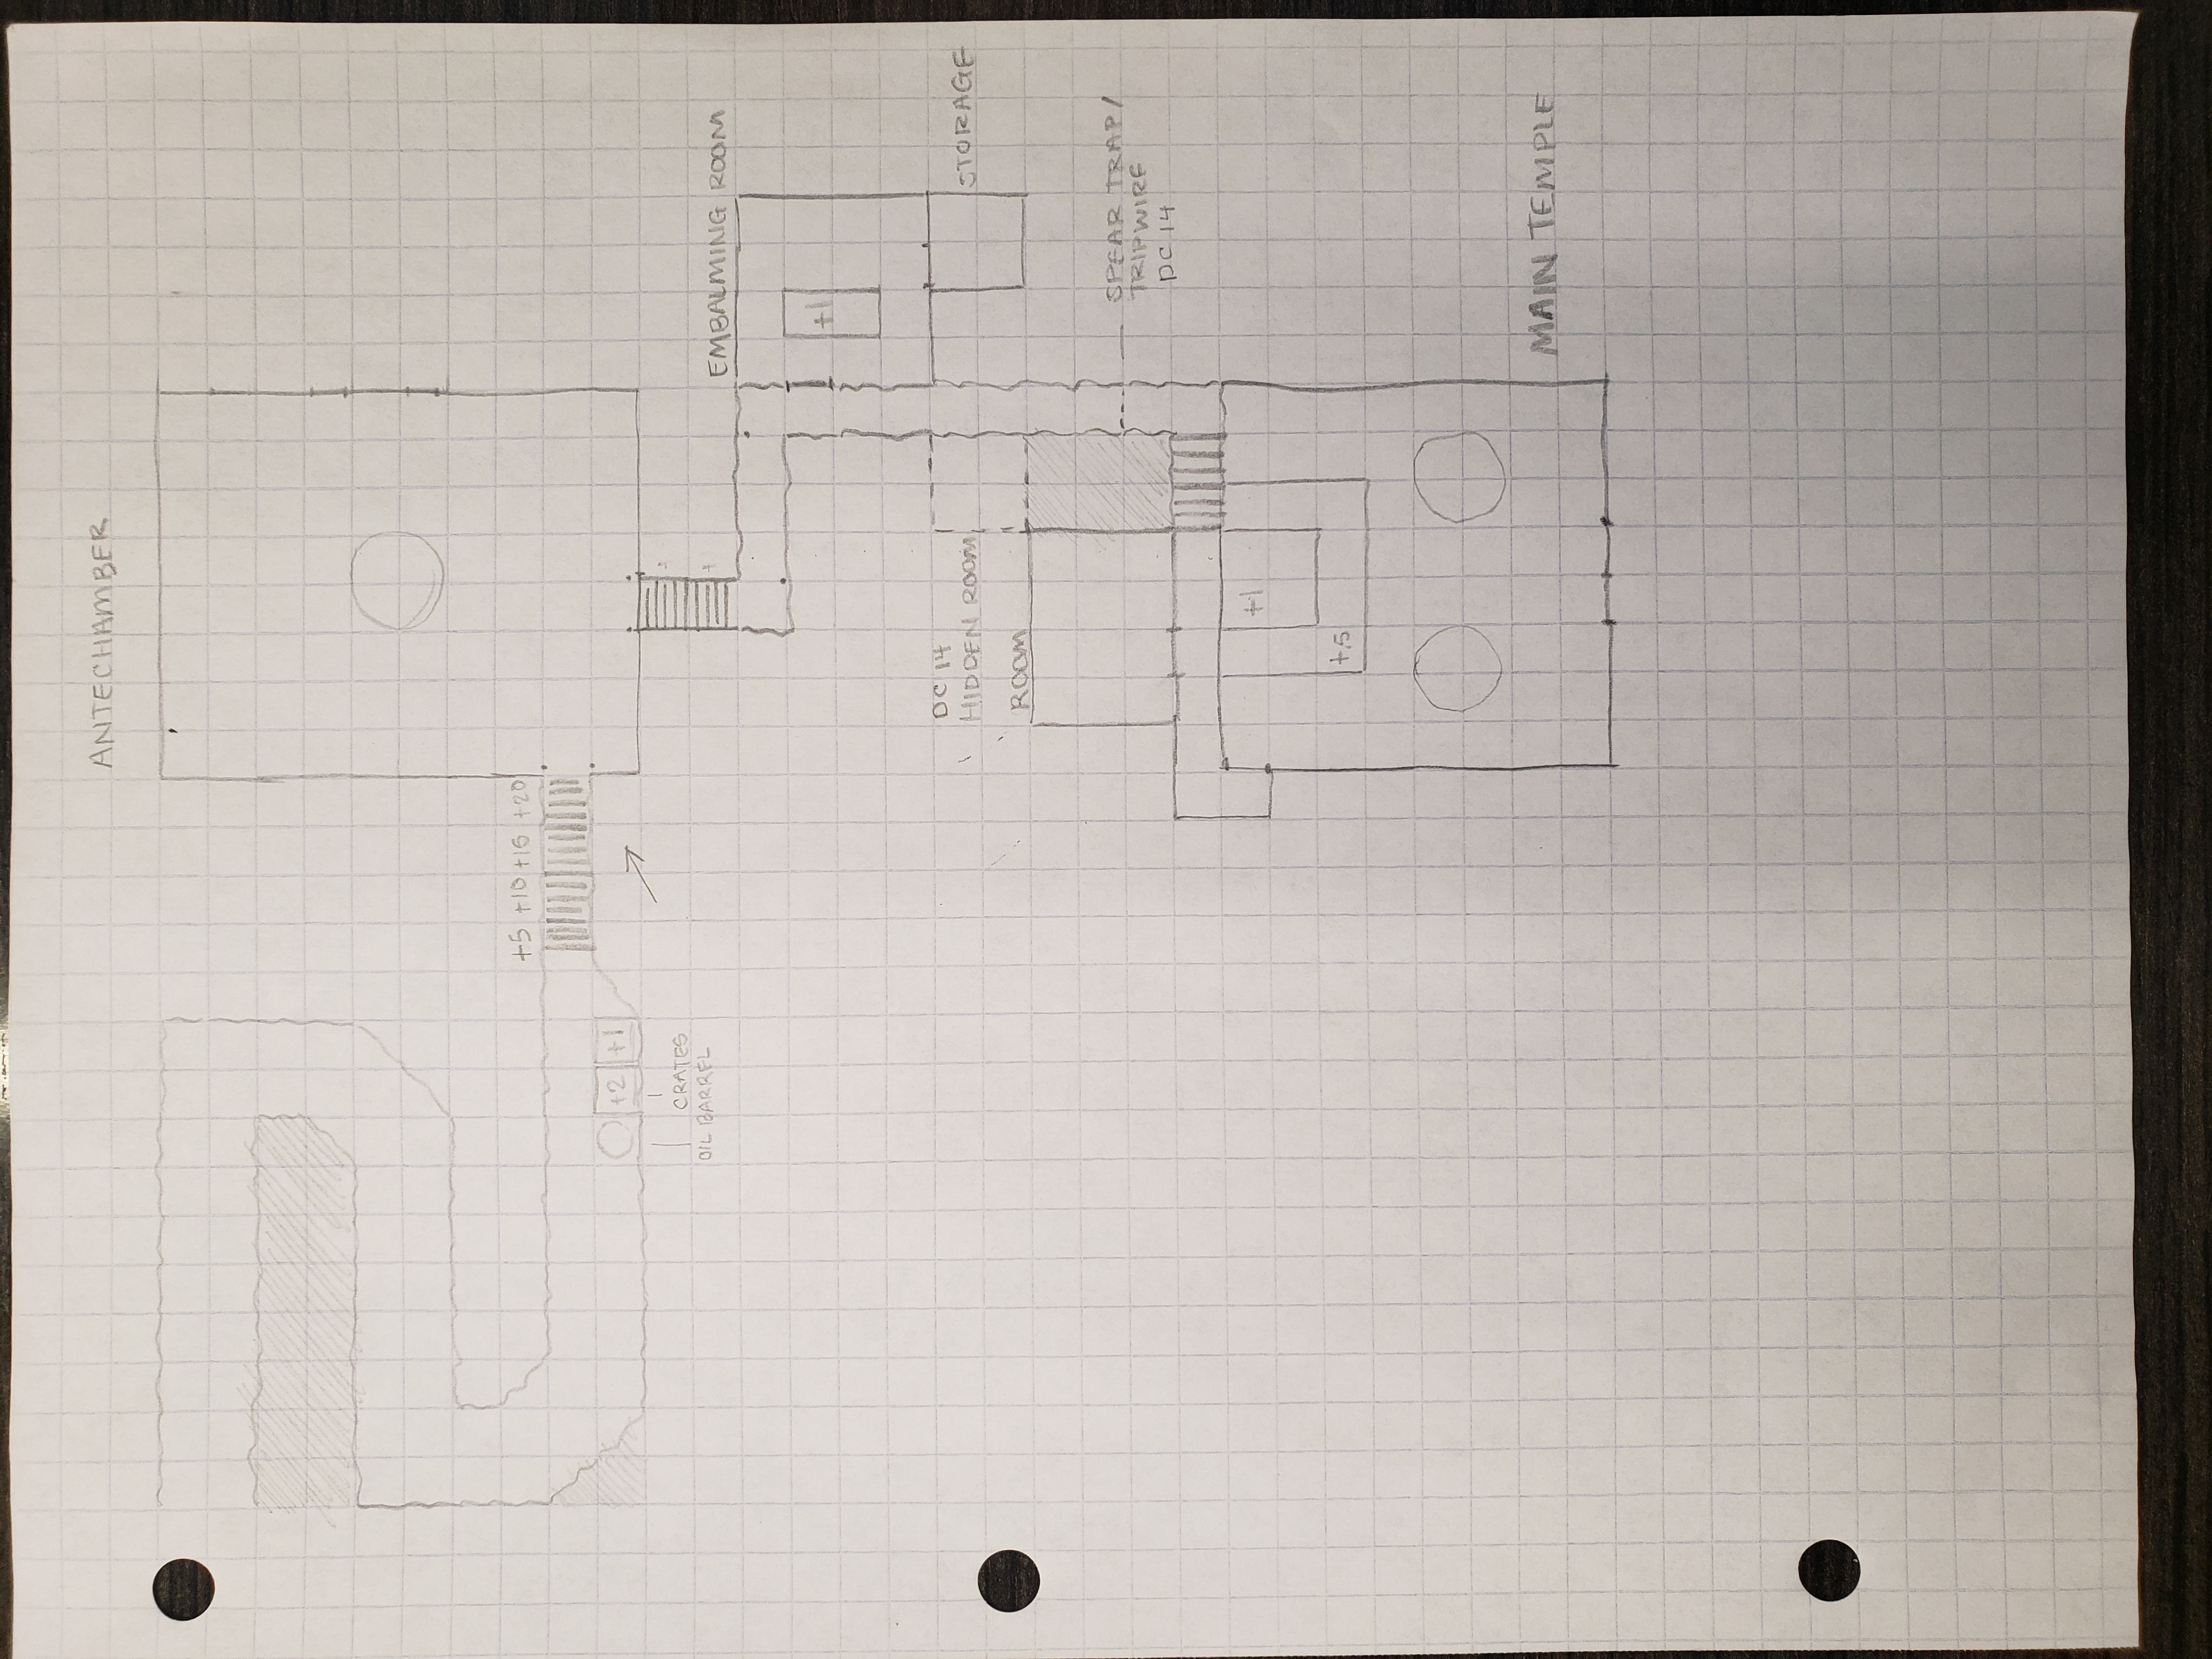 ANTECHAMBER
+5 +10 +15 +20
+2 +1
CRATES
OIL BARREL
EMBALMING ROOM
+1
DC 14
HIDDEN ROOM
STORAGE
ROOM
SPEAR TRAP/
TRIPWIRE
DC 14
+1
+.5
MAIN TEMPLE